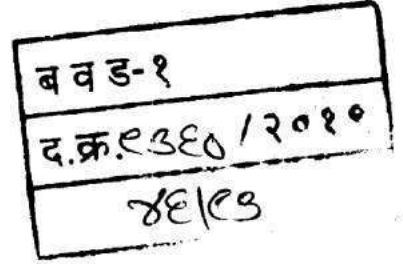 ब व ड-१
द.क्र.९३६०/२०१०
४६/९३